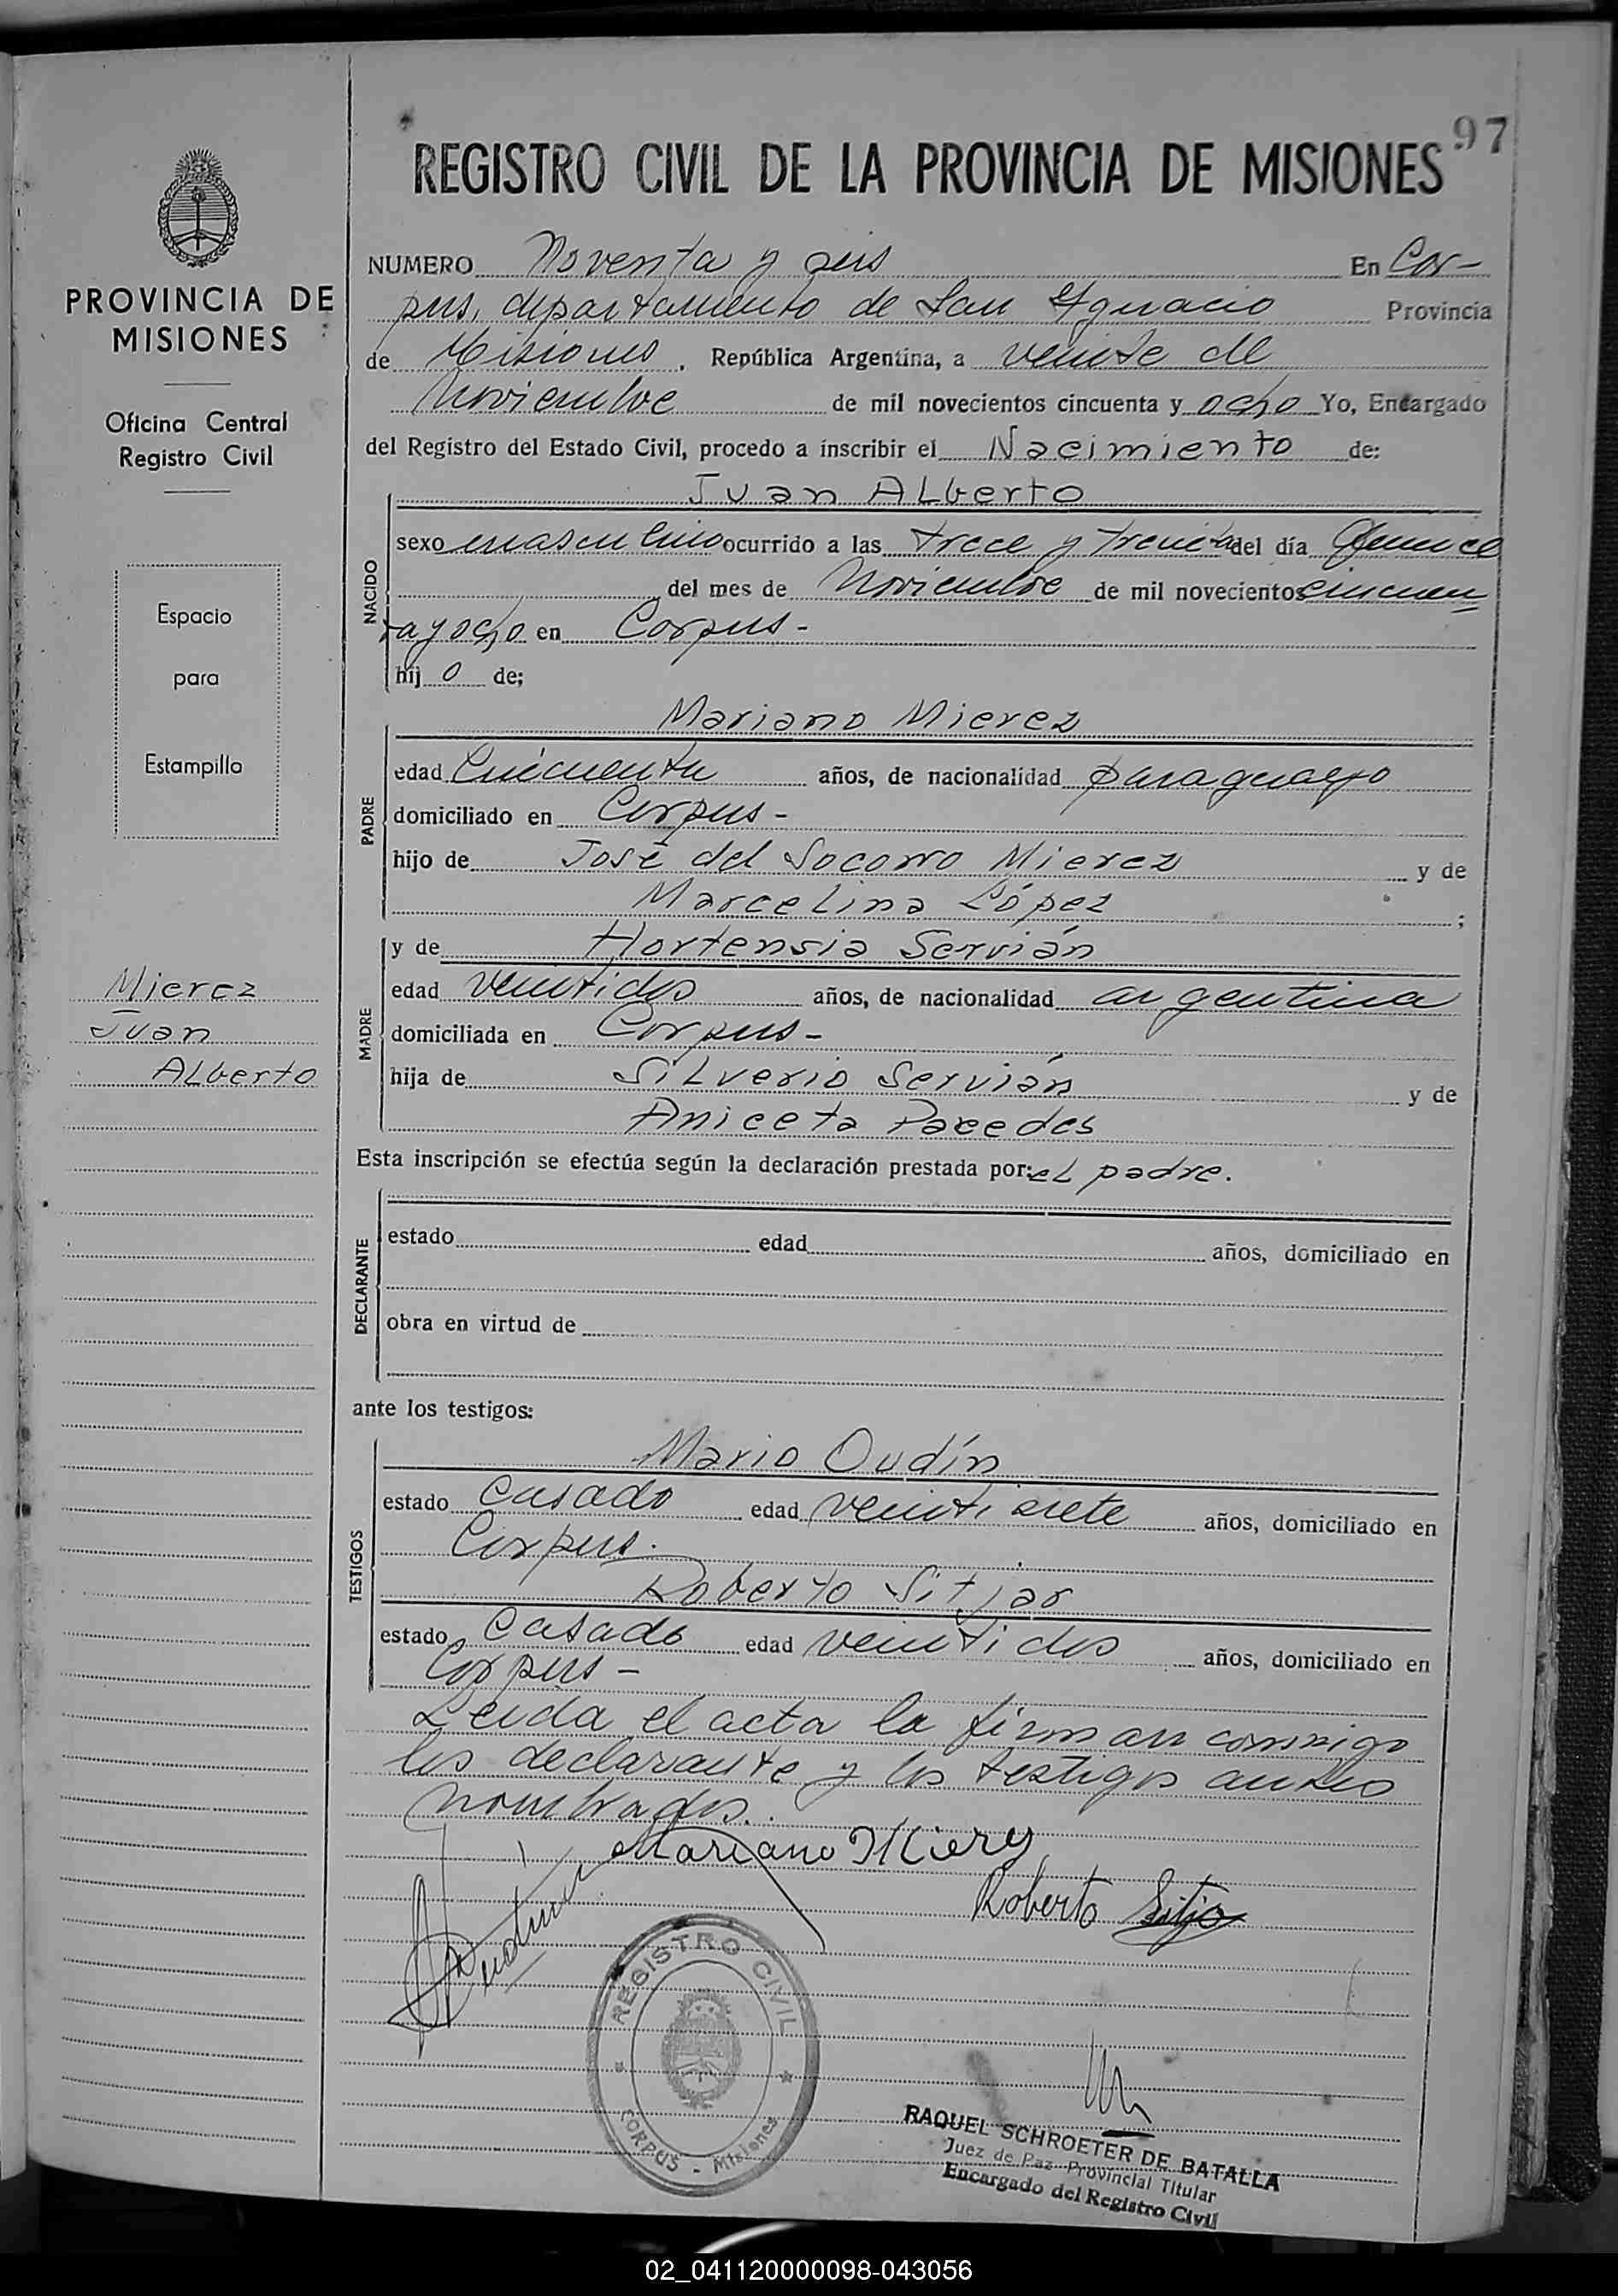 97
REGISTRO CIVIL DE LA PROVINCIA DE MISIONES
PROVINCIA DE
MISIONES
Oficina Central
Registro Civil
Espacio
para
Estampilla
Mierez
Juan
Alberto
NUMERO Noventa y seis En Cor-
pus, departamento de San Ygnacio Provincia
de Misiones. República Argentina, a veinte de
Noviembre de mil novecientos cincuenta y ocho Yo, Encargado
del Registro del Estado Civil, procedo a inscribir el Nacimiento de:
Juan Alberto
NACIDO
sexo masculino ocurrido a las trece y treinta del día Quince
del mes de Noviembre de mil novecientos cincuen
ta y ocho en Corpus-
hij o de;
Mariano Mierez
PADRE
edad Cincuenta años, de nacionalidad paraguayo
domiciliado en Corpus-
hijo de José del Socorro Mierez y de
Marcelina López ;
MADRE
y de Hortensia Servián
edad veintidos años, de nacionalidad argentina
domiciliada en Corpus-
hija de Silverio Servián y de
Aniceta Paredes
Esta inscripción se efectúa según la declaración prestada por: el padre.
DECLARANTE
estado edad años, domiciliado en
obra en virtud de
ante los testigos:
Mario Oudín
TESTIGOS
estado Casado edad veinti siete años, domiciliado en
Corpus.
Roberto Sitjar
estado Casado edad veintidos años, domiciliado en
Corpus-
Leida el acta la firman conmigo
los declarante y los testigos antes
nombrados.
Mariano Mierez
Roberto Sitja
REGISTRO CIVIL
CORPUS - Misiones
RAQUEL SCHROETER DE BATALLA
Juez de Paz Provincial Titular
Encargado del Registro Civil
02_041120000098-043056